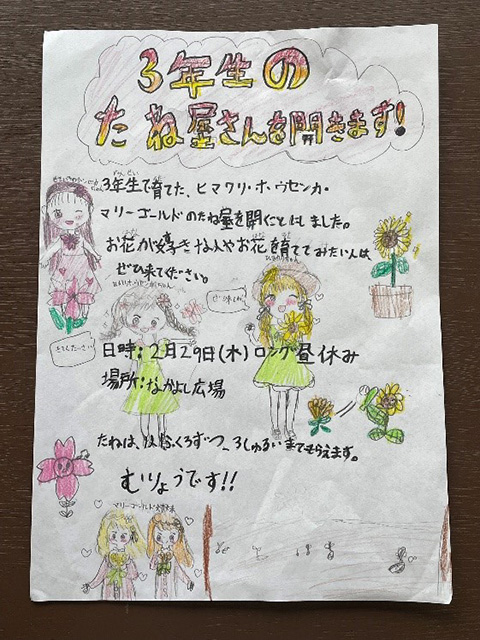 3年生の
たね屋さんを開きます!
3年生で育てた、ヒマワリ・ホウセンカ・
マリーゴールドのたね屋を開くことにしました。
お花が好きな人やお花を育ててみたい人は、
ぜひ来てください。
日時:2月29日(木)ロング昼休み
場所:なかよし広場
たねは、1人1ふくろずつ、3しゅるいまでもらえます。
むりょうです!!
マリーゴールド姉妹